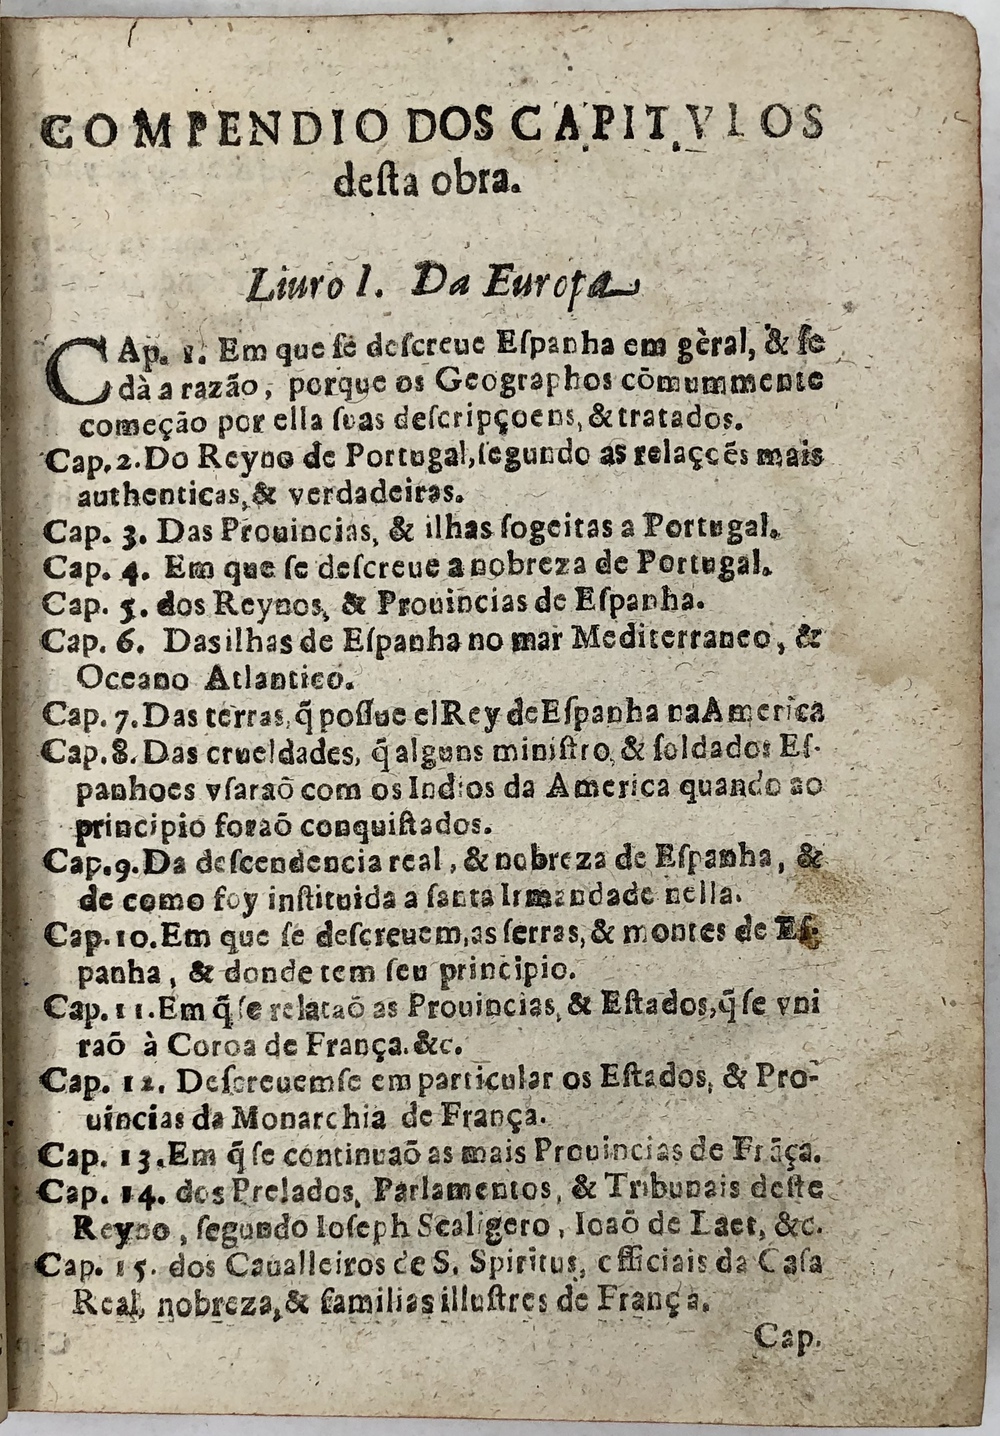 COMPENDIO DOS CAPITVLOS
deſta obra.
Liuro I. Da Europa
CAp. 1. Em que ſe deſcreue Eſpanha em gèral, & ſe
dà a razão, porque os Geographos cõmummente
começão por ella ſuas deſcripçoens, & tratados.
Cap. 2. Do Reyno de Portugal, ſegundo as relaçoẽs mais
authenticas, & verdadeiras.
Cap. 3. Das Prouincias, & ilhas ſogeitas a Portugal.
Cap. 4. Em que ſe deſcreue a nobreza de Portugal.
Cap. 5. dos Reynos, & Prouincias de Eſpanha.
Cap. 6. Das ilhas de Eſpanha no mar Mediterraneo, &
Oceano Atlantico.
Cap. 7. Das terras, q̃ poſſue el Rey de Eſpanha na America
Cap. 8. Das crueldades, q̃ alguns miniſtro, & ſoldados Eſ-
panhoes vſaraõ com os Indios da America quando ao
principio foraõ conquiſtados.
Cap. 9. Da deſcendencia real, & nobreza de Eſpanha, &
de como foy inſtituida a ſanta Irmandade nella.
Cap. 10. Em que ſe deſcreuem, as ſerras, & montes de Eſ-
panha, & donde tem ſeu principio.
Cap. 11. Em q̃ ſe relataõ as Prouincias, & Eſtados, q̃ ſe vni
raõ à Coroa de França. &c.
Cap. 12. Deſcreuemſe em particular os Eſtados, & Pro-
uincias da Monarchia de França.
Cap. 13. Em q̃ ſe continuaõ as mais Prouincias de Frãça.
Cap. 14. dos Prelados, Parlamentos, & Tribunais deſte
Reyno, ſegundo Ioſeph Scaligero, Ioaõ de Laet, &c.
Cap. 15. dos Caualleiros de S. Spiritus, officiais da Caſa
Real, nobreza, & familias illuſtres de França.
Cap.